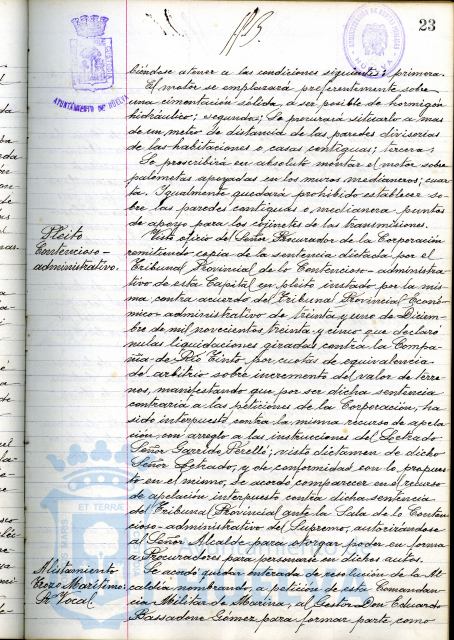 23
AYUNTAMIENTO DE HUELVA
biéndose atener a las condiciones siguientes: primera.
El motor se emplazará preferentemente sobre
una cimentación sólida, a ser posible de hormigón
hidráulico; segunda; Se procurará situarlo a mas
de un metro de distancia de las paredes divisorias
de las habitaciones o casas contiguas; tercera;
Se proscribirá en absoluto montar el motor sobre
palometas apoyadas en los muros medianeros; cuar-
ta. Igualmente quedará prohibido establecer so-
bre las paredes contiguas o medianera puntos
de apoyo para los cojinetes de las transmisiones.
Pleito
Contencioso-
administrativo.
Visto oficio del Señor Procurador de la Corporación
remitiendo copia de la sentencia dictada por el
Tribunal Provincial de lo Contencioso-administra-
tivo de esta Capital en pleito instado por la mis-
ma contra acuerdo del Tribunal Provincial Econó-
mico-administrativo de treinta y uno de Diciem-
bre de mil novecientos treinta y cinco que declaró
nulas liquidaciones giradas contra la Compa-
ñia de Rio Tinto por cuotas de equivalencia
de arbitrio sobre incremento del valor de terre-
nos, manifestando que por ser dicha sentencia
contraria a las peticiones de la Corporación, ha
sido interpuesto contra la misma recurso de apela-
ción en arreglo a las instrucciones del Letrado
Señor Garrido Perelló; visto dictamen de dicho
Señor Letrado, y de conformidad con lo propues-
to en el mismo, se acordó comparecer en el recurso
de apelación interpuesto contra dicha sentencia
del Tribunal Provincial ante la Sala de lo Conten-
cioso-administrativo del Supremo, autorizándose
al Señor Alcalde para otorgar poder en forma
a Procuradores para personarse en dichos autos.
Alistamiento
Trozo Marítimo:
Vocal
Se acordó quedar enterada de resolución de la Al-
caldía nombrando, a petición de esta Comandan-
cia Militar de Marina, al Gestor Don Eduardo
Bassadone Gómez para formar parte, como
ET TERRÆ